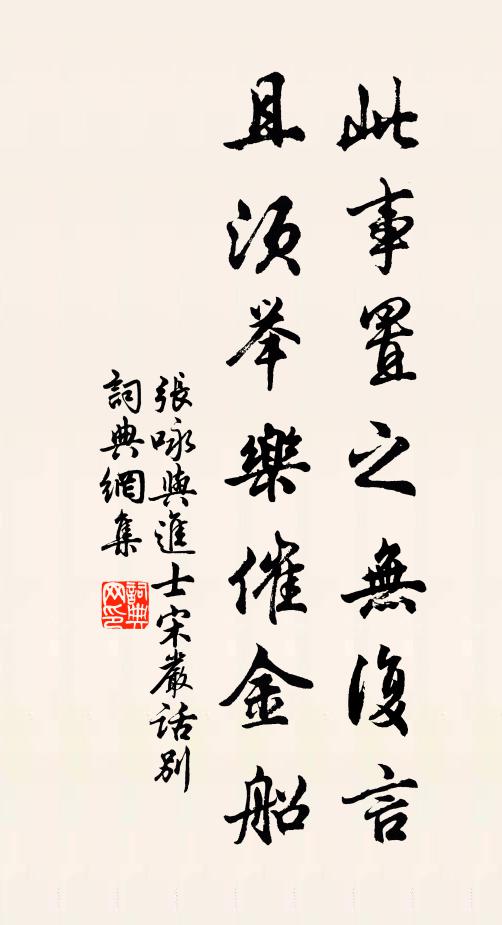 此事置之無復言
且須举樂催金船
張咏與進士宋嚴話別
詞典網集
詞典网印